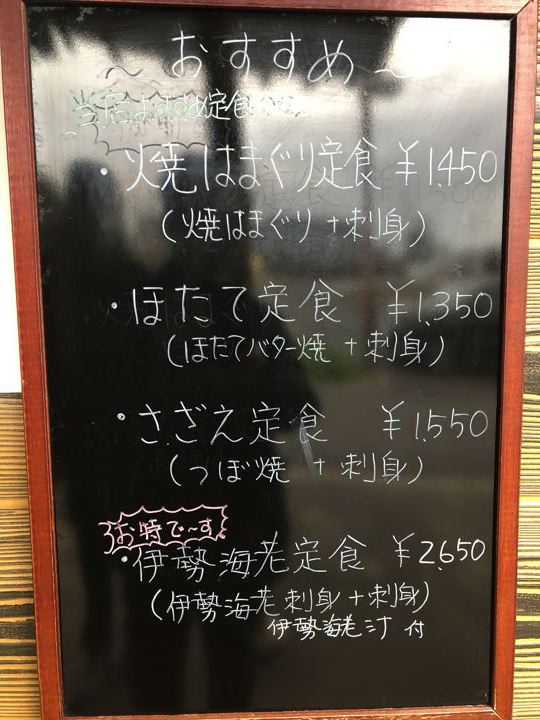 ~おすすめ~
当店おすすめ定食
・焼はまぐり定食 ¥1,450
(焼はまぐり+刺身)
・ほたて定食 ¥1,350
(ほたてバター焼+刺身)
・さざえ定食 ¥1,550
(つぼ焼+刺身)
お時で〜す
・伊勢海老定食 ¥2,650
(伊勢海老刺身+刺身)
伊勢海老汁 付